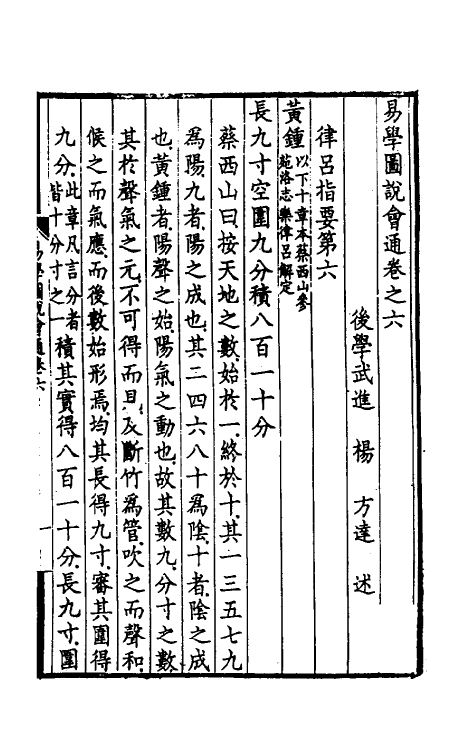 易學圖說會通卷之六
後學武進楊方達述
律呂指要第六
黃鍾以下十章本蔡西山參
苑洛志樂律呂解定
長九寸空圍九分積八百一十分
蔡西山曰按天地之數始於一終於十其一三五七九
為陽九者陽之成也其二四六八十為陰十者陰之成
也黃鍾者陽聲之始陽氣之動也故其數九分寸之數
其於聲氣之元不可得而見及斷竹為管吹之而聲和
候之而氣應而後數始形焉均其長得九寸審其圍得
九分此章凡言分者
皆十分寸之一積其實得八百一十分長九寸圍
易學圖說會通卷六
一